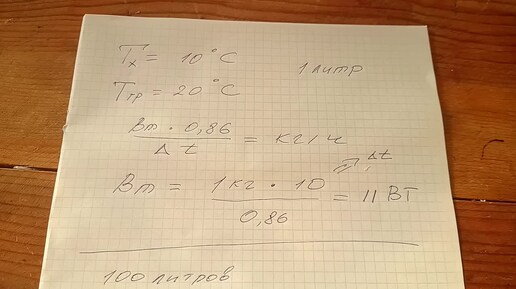 Tх = 10°C
1 литр
Tгр = 20°C
Вт · 0,86 / Δt = кг/ч
Δt
Вт = 1 кг · 10 / 0,86 = 11 ВТ
100 литров